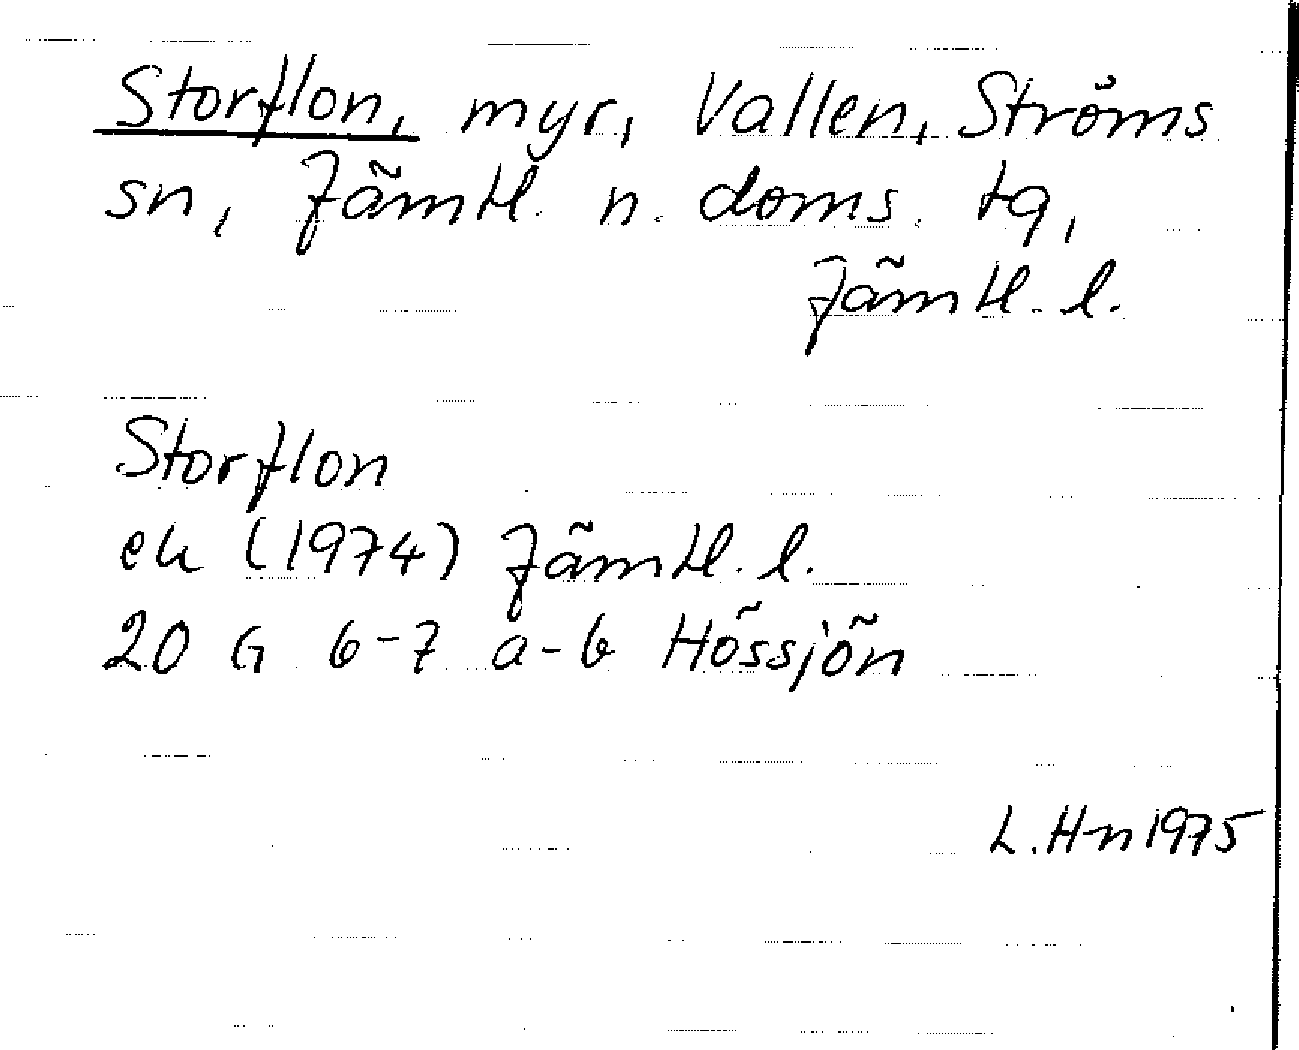 Storflon, myr, Vallen, Ströms
sn, Jämtl. n. doms. tg,
Jämtl. l.
Storflon
ek (1974) Jämtl. l.
20 G 6-7 a-b Hössjön
L. Hn 1975